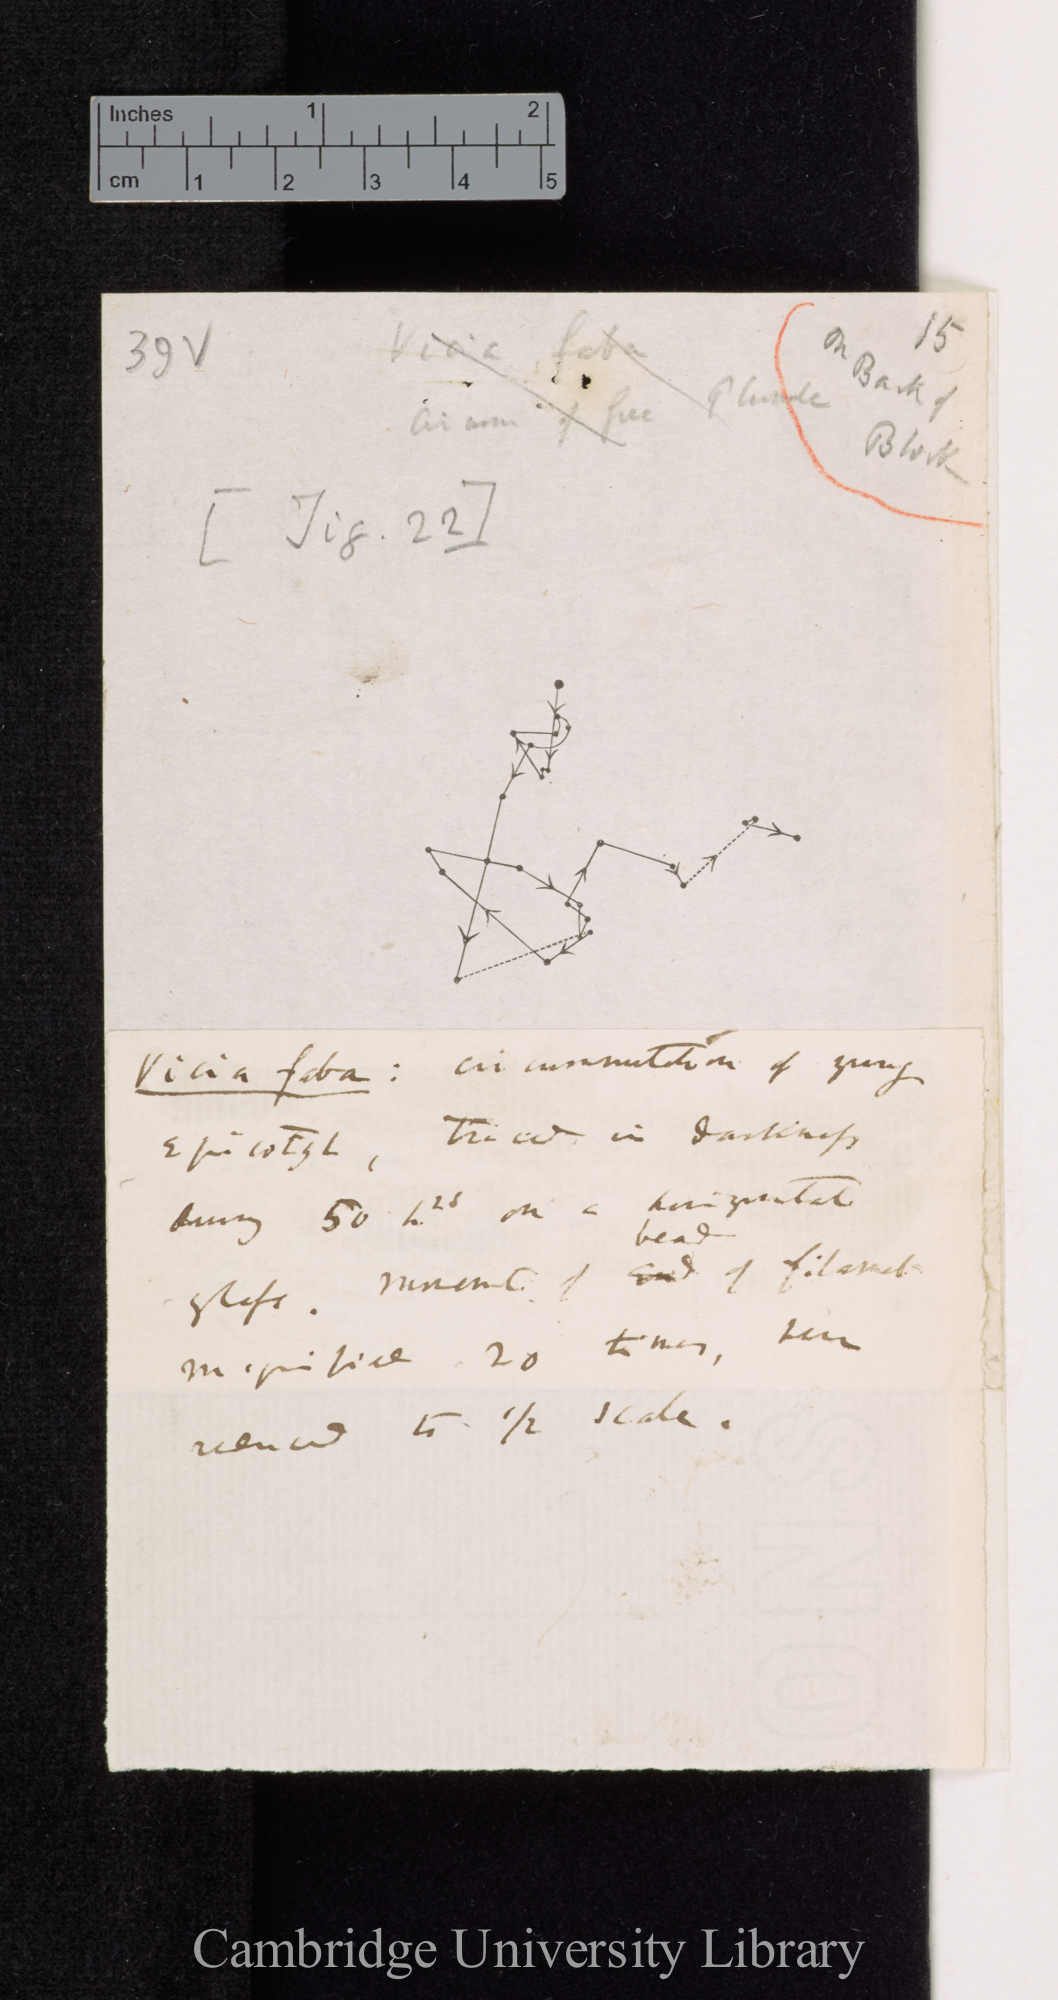 Inches 1 2
cm 1 2 3 4 5
39V
Vicia faba
Circum of free Plumule
15
on Back of
Block
[ Fig. 22]
Vicia faba : circumnutation of young
epicotyl, traced in darkness
during 50 hrs on a horizontal
bead
glass. Movement of end of filament
magnified 20 times, here
reduced to 1/2 scale.
ONS
Cambridge University Library